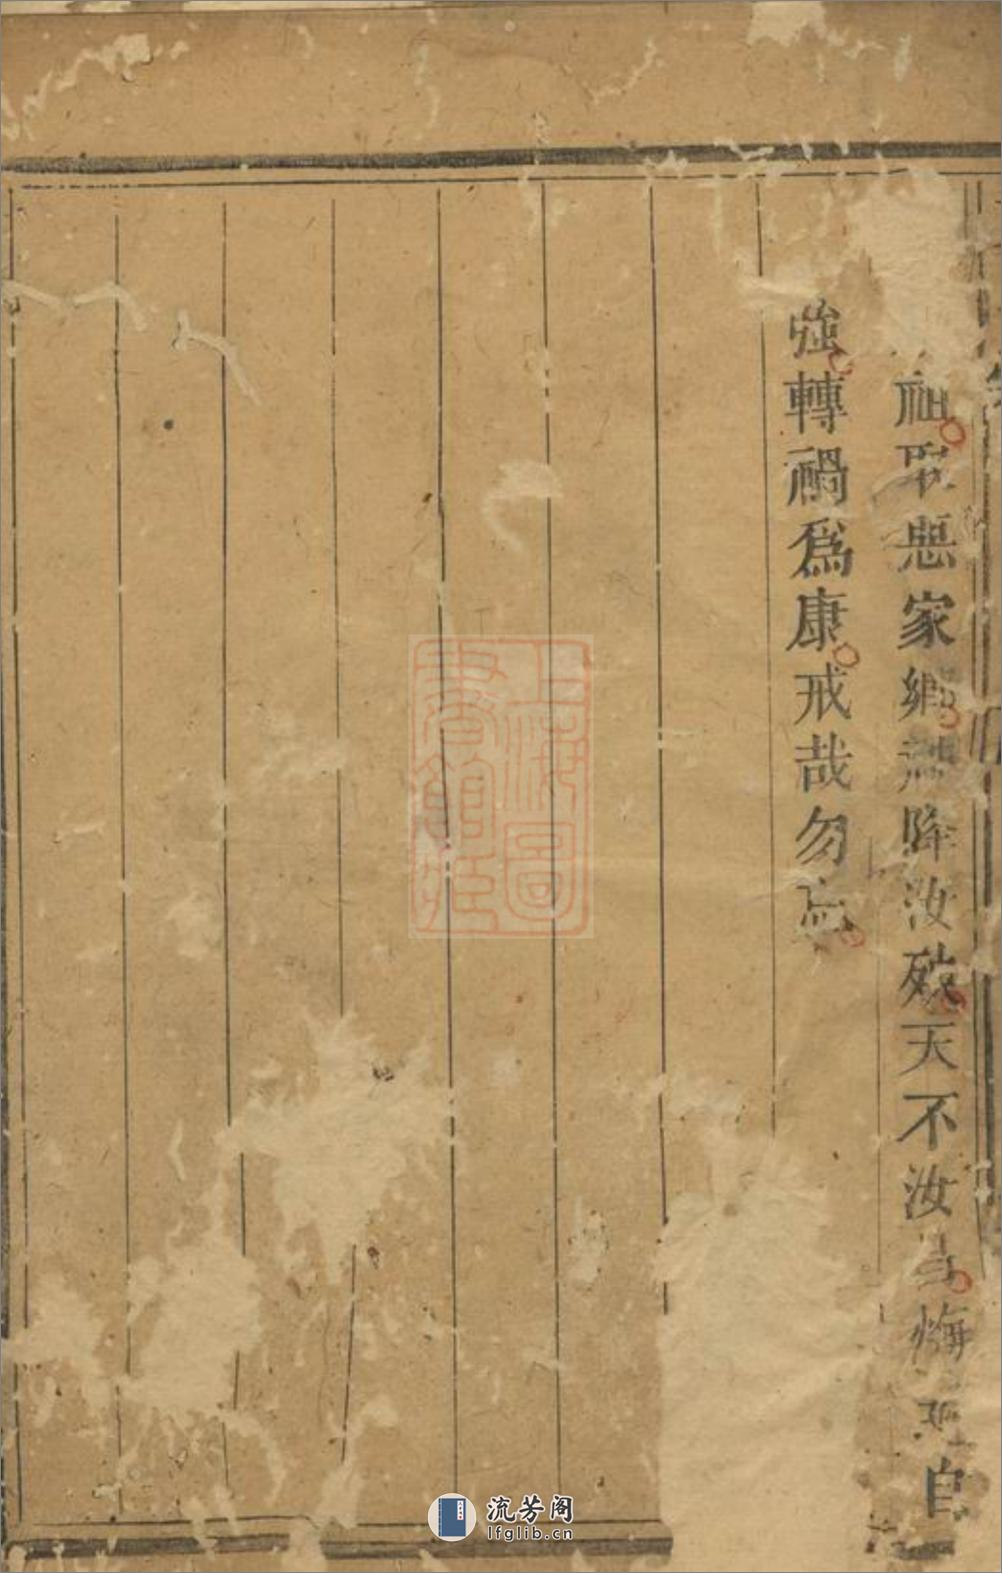 祖取惡家鄉降汝殃天不汝悔自
強轉禍爲康戒哉勿忘
上海圖書館藏
流芳阁
lfglib.cn